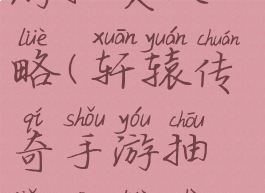 lüè xuān yuán chuán
略(轩辕传
qí shǒu yóu chōu
奇手游抽